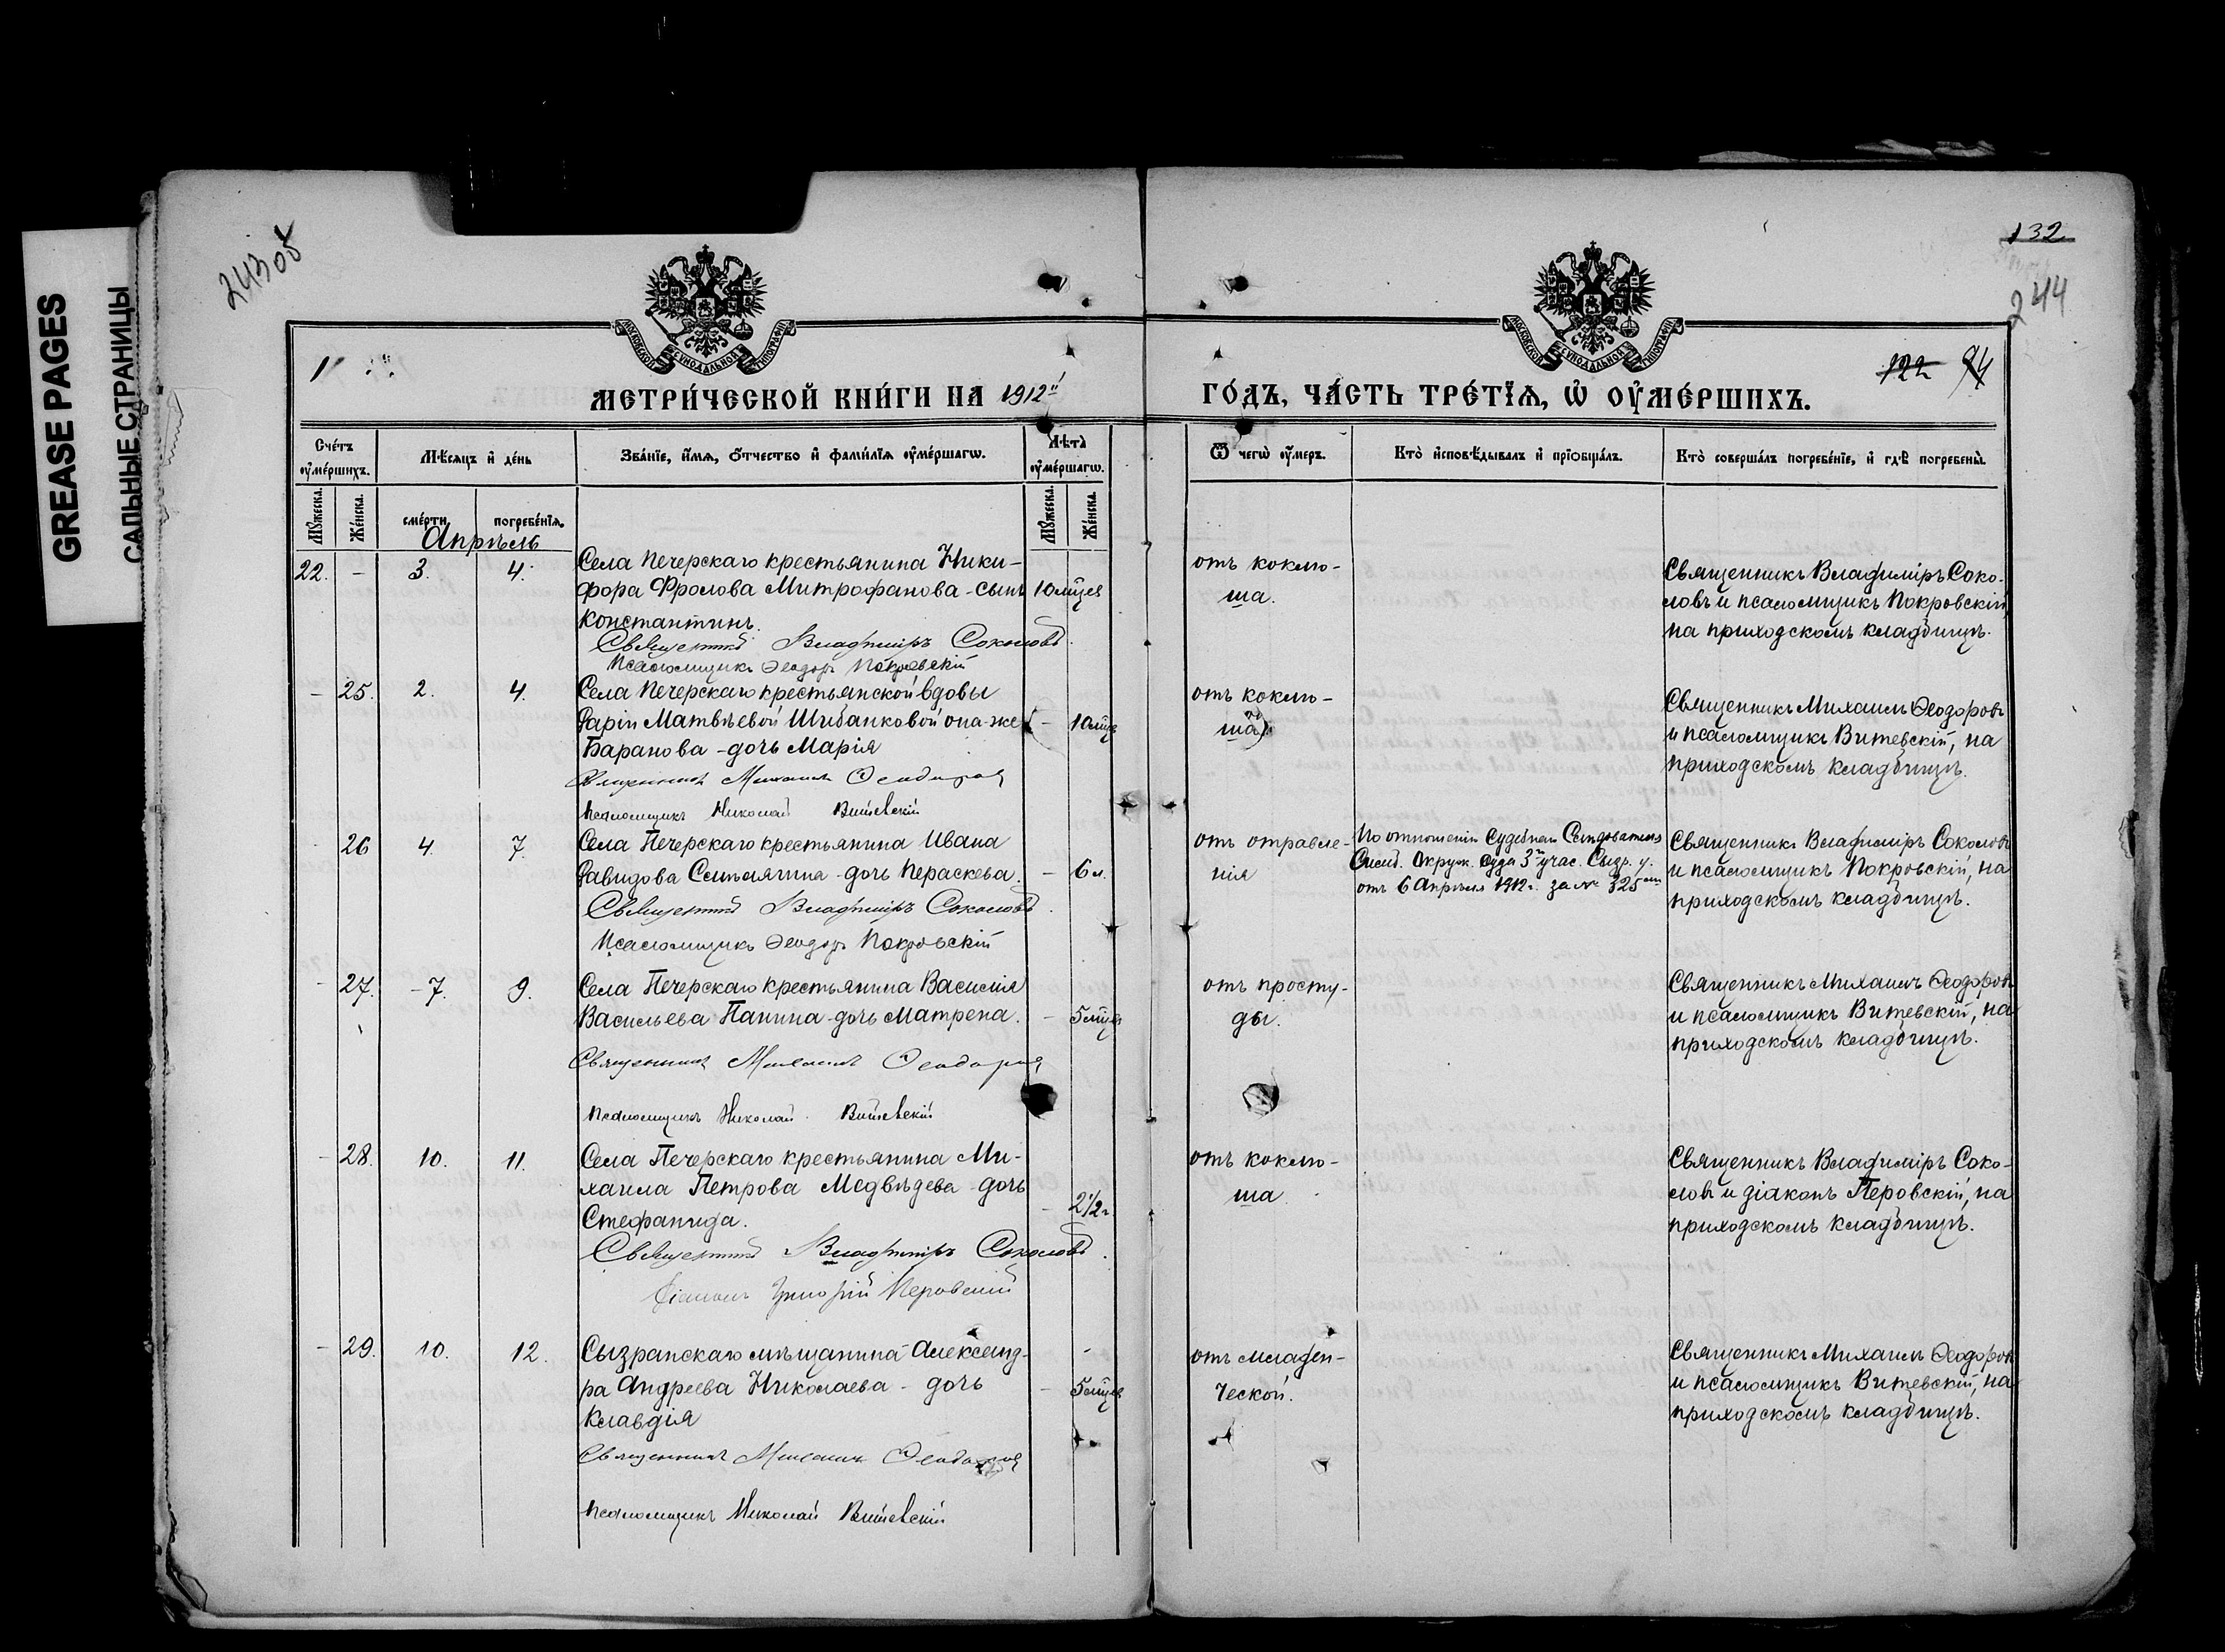 GREASE PAGES
САЛЬНЫЕ СТРАНИЦЫ
24308
132
244
МОСКОВСКОЙ СѴНОДАЛЬНОЙ ТИПОГРАФІИ
МОСКОВСКОЙ СѴНОДАЛЬНОЙ ТИПОГРАФІИ
122 94
МЕТРИ́ЧЕСКОЙ КНИ́ГИ НА 1912й
ГО́ДЪ, ЧА́СТЬ ТРЕ́ТЇѦ, Ѡ҆ ОУ҆МЕ́РШИХЪ.
Сче́тъ оу҆ме́ршихъ.
Мѣ́сяцъ и҆ де́нь
Зва́нїе, и҆́мѧ, ѻ҆́тчество и҆ фами́лїѧ оу҆ме́ршагѡ.
Лѣ́та оу҆ме́ршагѡ.
Ѿ чегѡ̀ оу҆́меръ.
Кто̀ и҆сповѣ́дывалъ и҆ прїѡбща́лъ.
Кто̀ соверша́лъ погребе́нїе, и҆ гдѣ̀ погребены̀.
Мꙋ́жеска.
Же́нска.
сме́рти.
погребе́нїѧ.
Мꙋ́жеска.
Же́нска.
Апрѣль
22. - 3. 4. Села Печерскаго крестьянина Ники-
фора Фролова Митрофанова - сынъ 10 мцев
Константинъ.
Священникъ Владиміръ Соколовъ.
Псаломщикъ Ѳеодоръ Покровскій
отъ коклю-
ша.
Священникъ Владиміръ Соко-
ловъ и псаломщикъ Покровскій,
на приходскомъ кладбищѣ.
- 25. 2. 4. Села Печерскаго крестьянской вдовы
Дарiи Матвѣевой Шибанковой она-же - 10 мцв
Баранова - дочь Марія
Священникъ Михаилъ Ѳеодоровъ
Псаломщикъ Николай Витевскій
отъ коклю-
ша
Священникъ Михаилъ Ѳеодоровъ
и псаломщикъ Витевскій, на
приходскомъ кладбищѣ.
26 4. 7. Села Печерскаго крестьянина Ивана
Давидова Синлягина - дочь Параскева. - 6 л.
Священникъ Владиміръ Соколовъ.
Псаломщикъ Ѳеодоръ Покровскій
отъ отравле-
нія
По отношенію Судебнаго Слѣдователя
Симб. Окруж. Суда 3го учас. Сызр. у.
отъ 6 Апрѣля 1912 г. за № 325
Священникъ Владиміръ Соколовъ
и псаломщикъ Покровскій, на
приходскомъ кладбищѣ.
- 27. - 7. 9. Села Печерскаго крестьянина Василія
Васильева Панина - дочь Матрена. - 5 мцев
Священникъ Михаилъ Ѳеодоровъ
Псаломщикъ Николай Витевскій
отъ просту-
ды.
Священникъ Михаилъ Ѳеодоровъ
и псаломщикъ Витевскій, на
приходскомъ кладбищѣ.
- 28. 10. 11. Села Печерскаго крестьянина Ми-
хаила Петрова Медвѣдева - дочь
Стефанида. - 2 1/2 г.
Священникъ Владиміръ Соколовъ.
Діаконъ Григорій Перовскій
отъ коклю-
ша.
Священникъ Владиміръ Соко-
ловъ и діаконъ Перовскій, на
приходскомъ кладбищѣ.
- 29. 10. 12. Сызранскаго мѣщанина Александ-
ра Андреева Николаева - дочь - 5 мцев
Клавдія
Священникъ Михаилъ Ѳеодоровъ
Псаломщикъ Николай Витевскій
отъ младен-
ческой.
Священникъ Михаилъ Ѳеодоровъ
и псаломщикъ Витевскій, на
приходскомъ кладбищѣ.